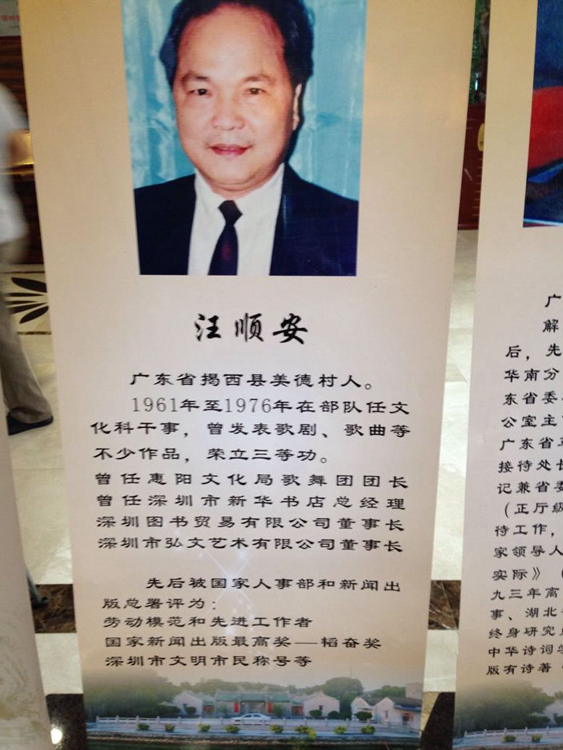 汪顺安
广东省揭西县美德村人。
1961年至1976年在部队任文
化科干事，曾发表歌剧、歌曲等
不少作品，荣立三等功。
曾任惠阳文化局歌舞团团长
曾任深圳市新华书店总经理
深圳图书贸易有限公司董事长
深圳市弘文艺术有限公司董事长
先后被国家人事部和新闻出
版总署评为：
劳动模范和先进工作者
国家新闻出版最高奖——韬奋奖
深圳市文明市民称号等
广
解
后，先
华南分
东省委
公室主
广东省
接待处长
记兼省委
（正厅级
待工作，
家领导人
实际》（
九三年离
事、湖北
终身研究
中华诗词学
版有诗著